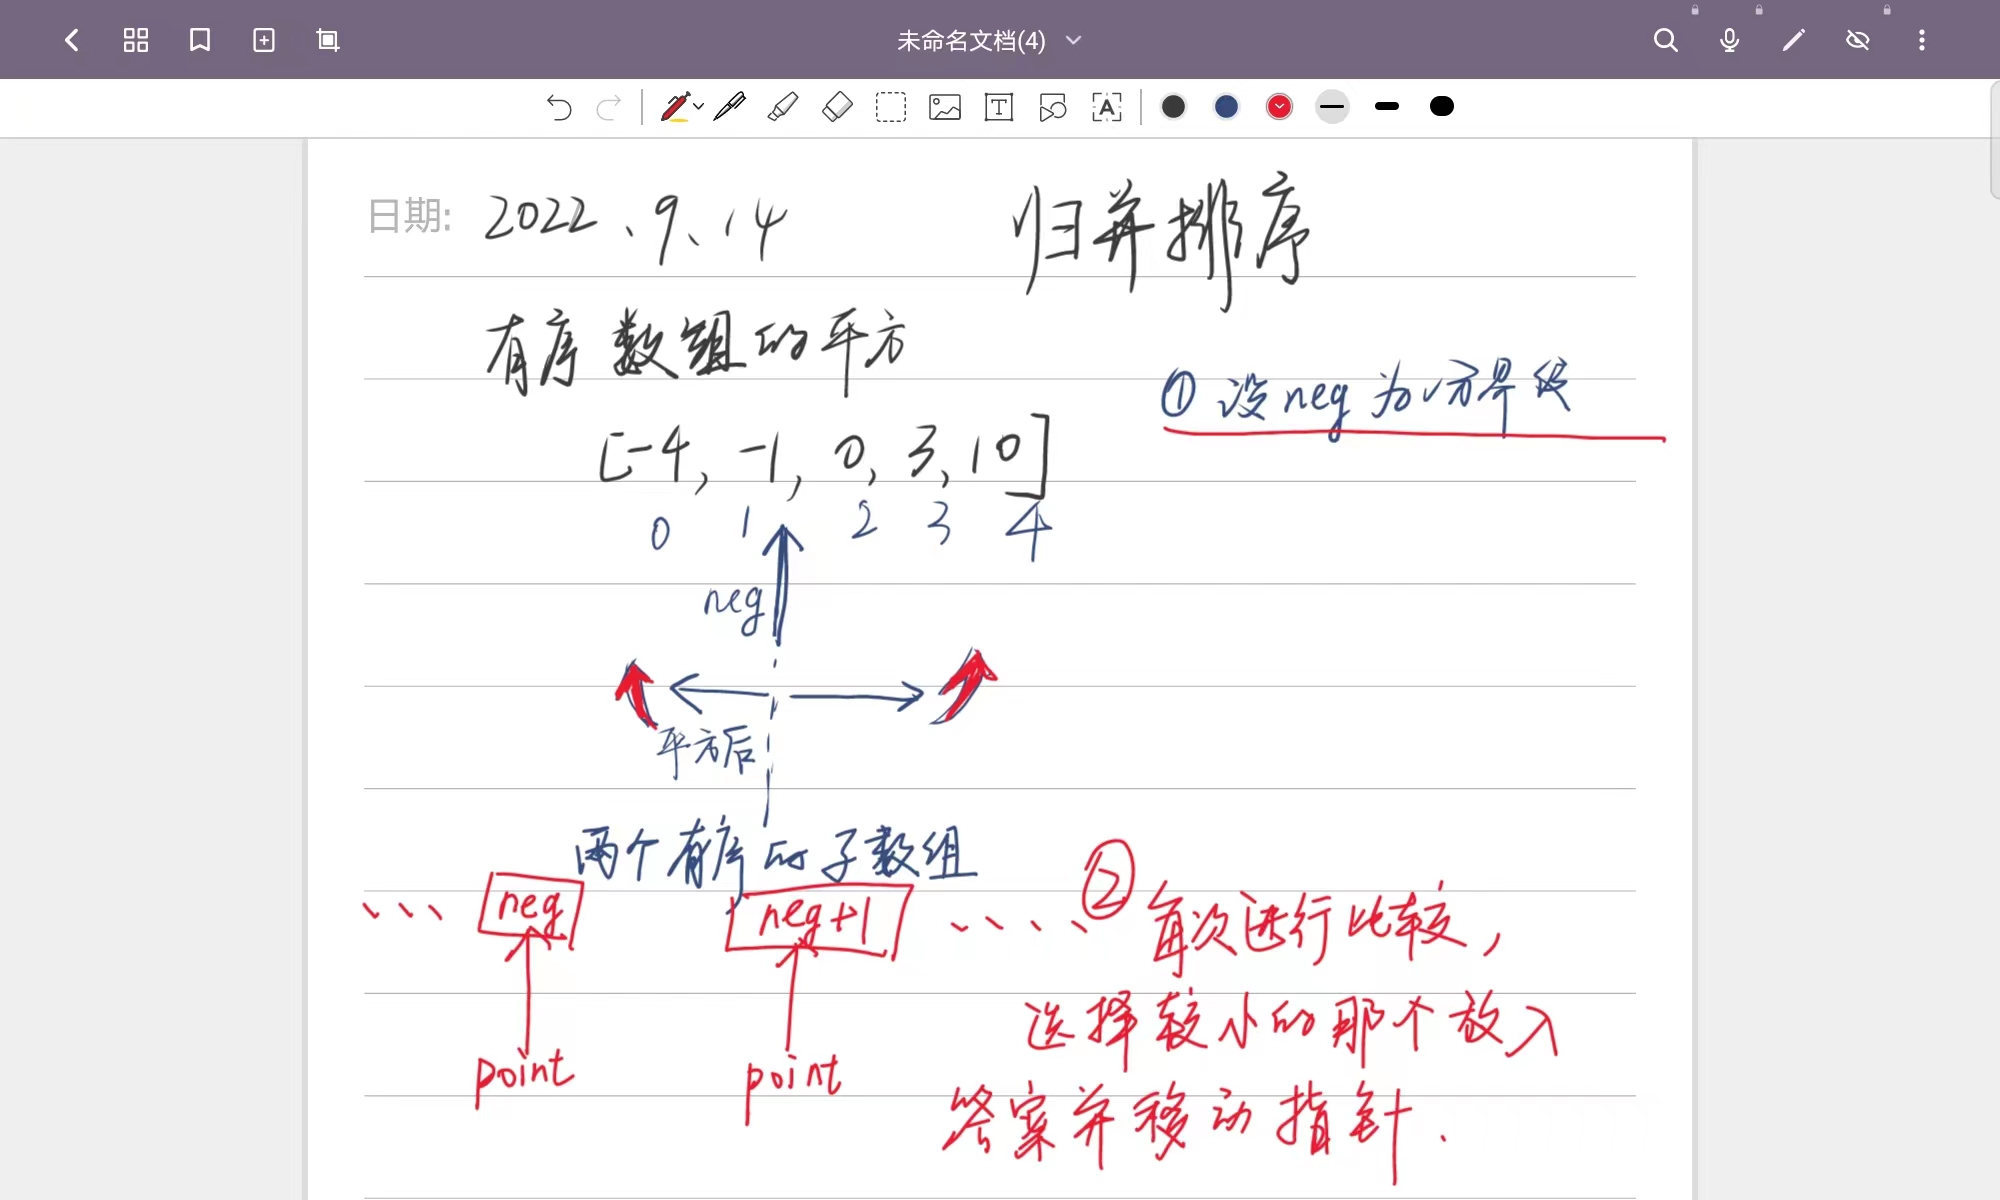 未命名文档(4)
日期: 2022、9、14 归并排序
有序数组的平方
① 设neg为分界线
[-4, -1, 0, 3, 10]
0 1 2 3 4
neg
平方后
两个有序的子数组
neg neg+1
② 每次进行比较,
选择较小的那个放入
答案并移动指针.
point point